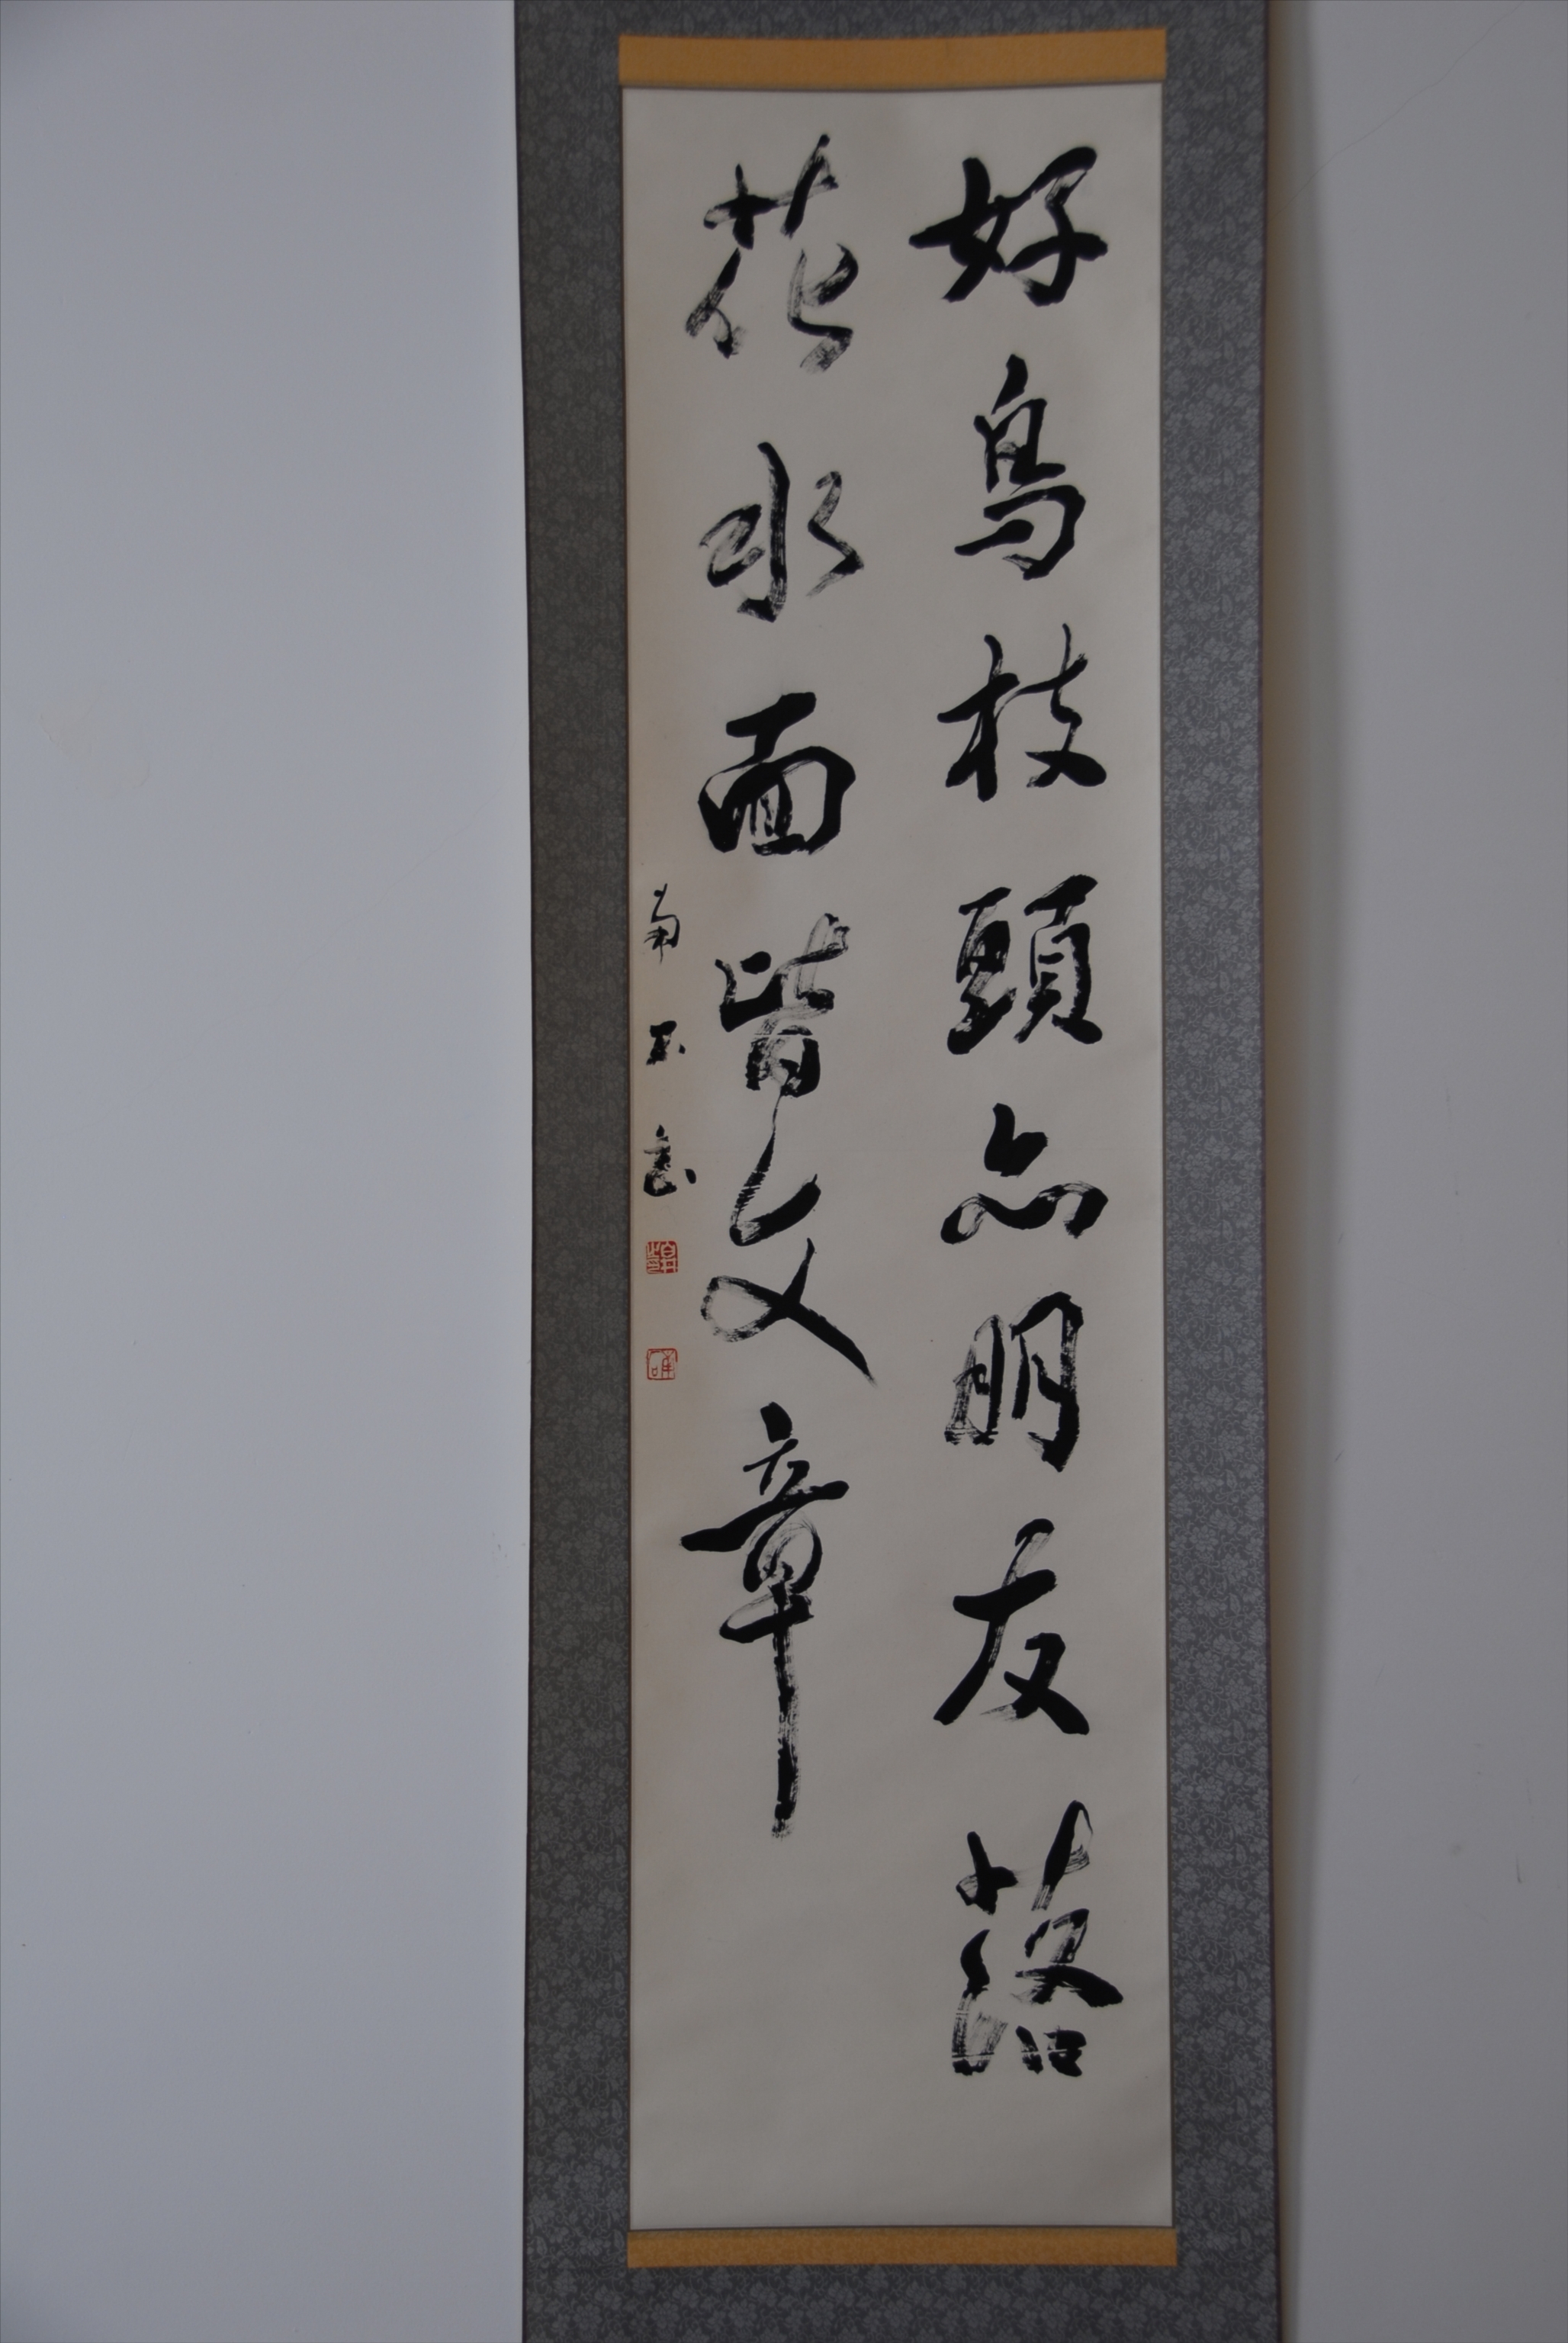 好鳥枝頭亦朋友落
花水面皆文章